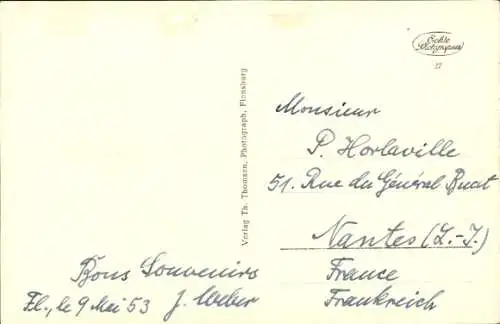 Echte Photographie
17
Verlag Th. Thomsen, Photograph, Flensburg
Monsieur
P. Horlaville
51. Rue du Général Buat
Nantes (L.-I.)
France
Frankreich
Bons Souvenirs
Fl., le 9 Mei 53 J. Weber